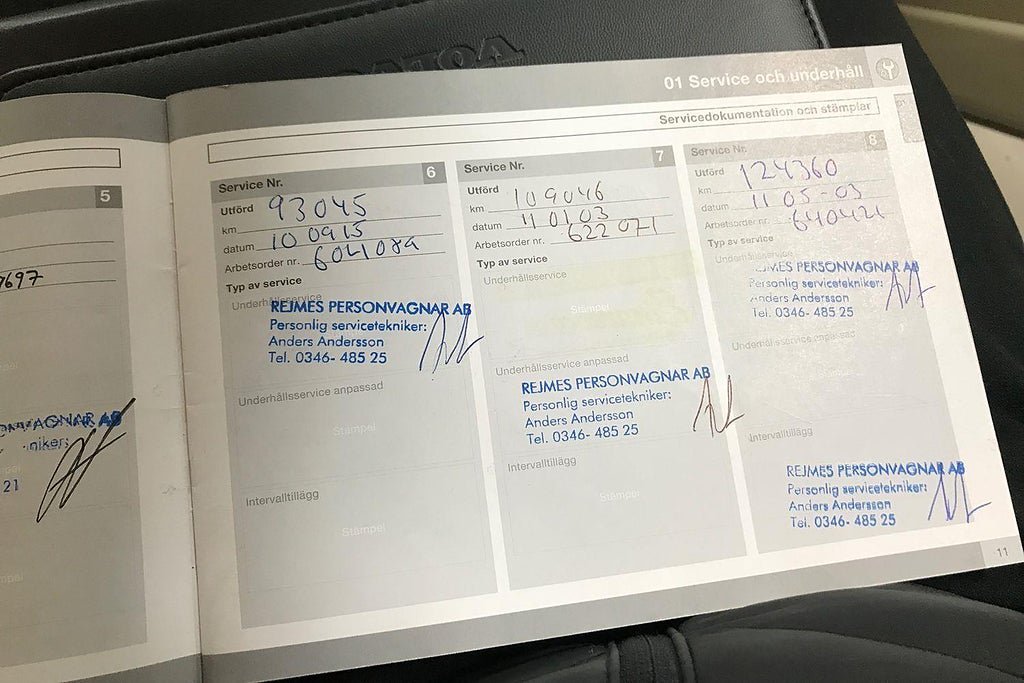 VOLVO
01 Service och underhåll
Servicedokumentation och stämplar
5
7697
21
Service Nr. 6
Utförd
km 93045
datum 100915
Arbetsorder nr. 604089
Typ av service
Underhållsservice
REJMES PERSONVAGNAR AB
Personlig servicetekniker:
Anders Andersson
Tel. 0346- 485 25
Underhållsservice anpassad
Stämpel
Intervalltillägg
Stämpel
Service Nr. 7
Utförd
km 109046
datum 110103
Arbetsorder nr. 622071
Typ av service
Underhållsservice
Stämpel
Underhållsservice anpassad
REJMES PERSONVAGNAR AB
Personlig servicetekniker:
Anders Andersson
Tel. 0346- 485 25
Intervalltillägg
Stämpel
Service Nr. 8
Utförd
km 124360
datum 11 05-03
Arbetsorder nr. 640421
Typ av service
Underhållsservice
REJMES PERSONVAGNAR AB
Personlig servicetekniker:
Anders Andersson
Tel. 0346- 485 25
Underhållsservice anpassad
Stämpel
Intervalltillägg
REJMES PERSONVAGNAR AB
Personlig servicetekniker:
Anders Andersson
Tel. 0346- 485 25
11